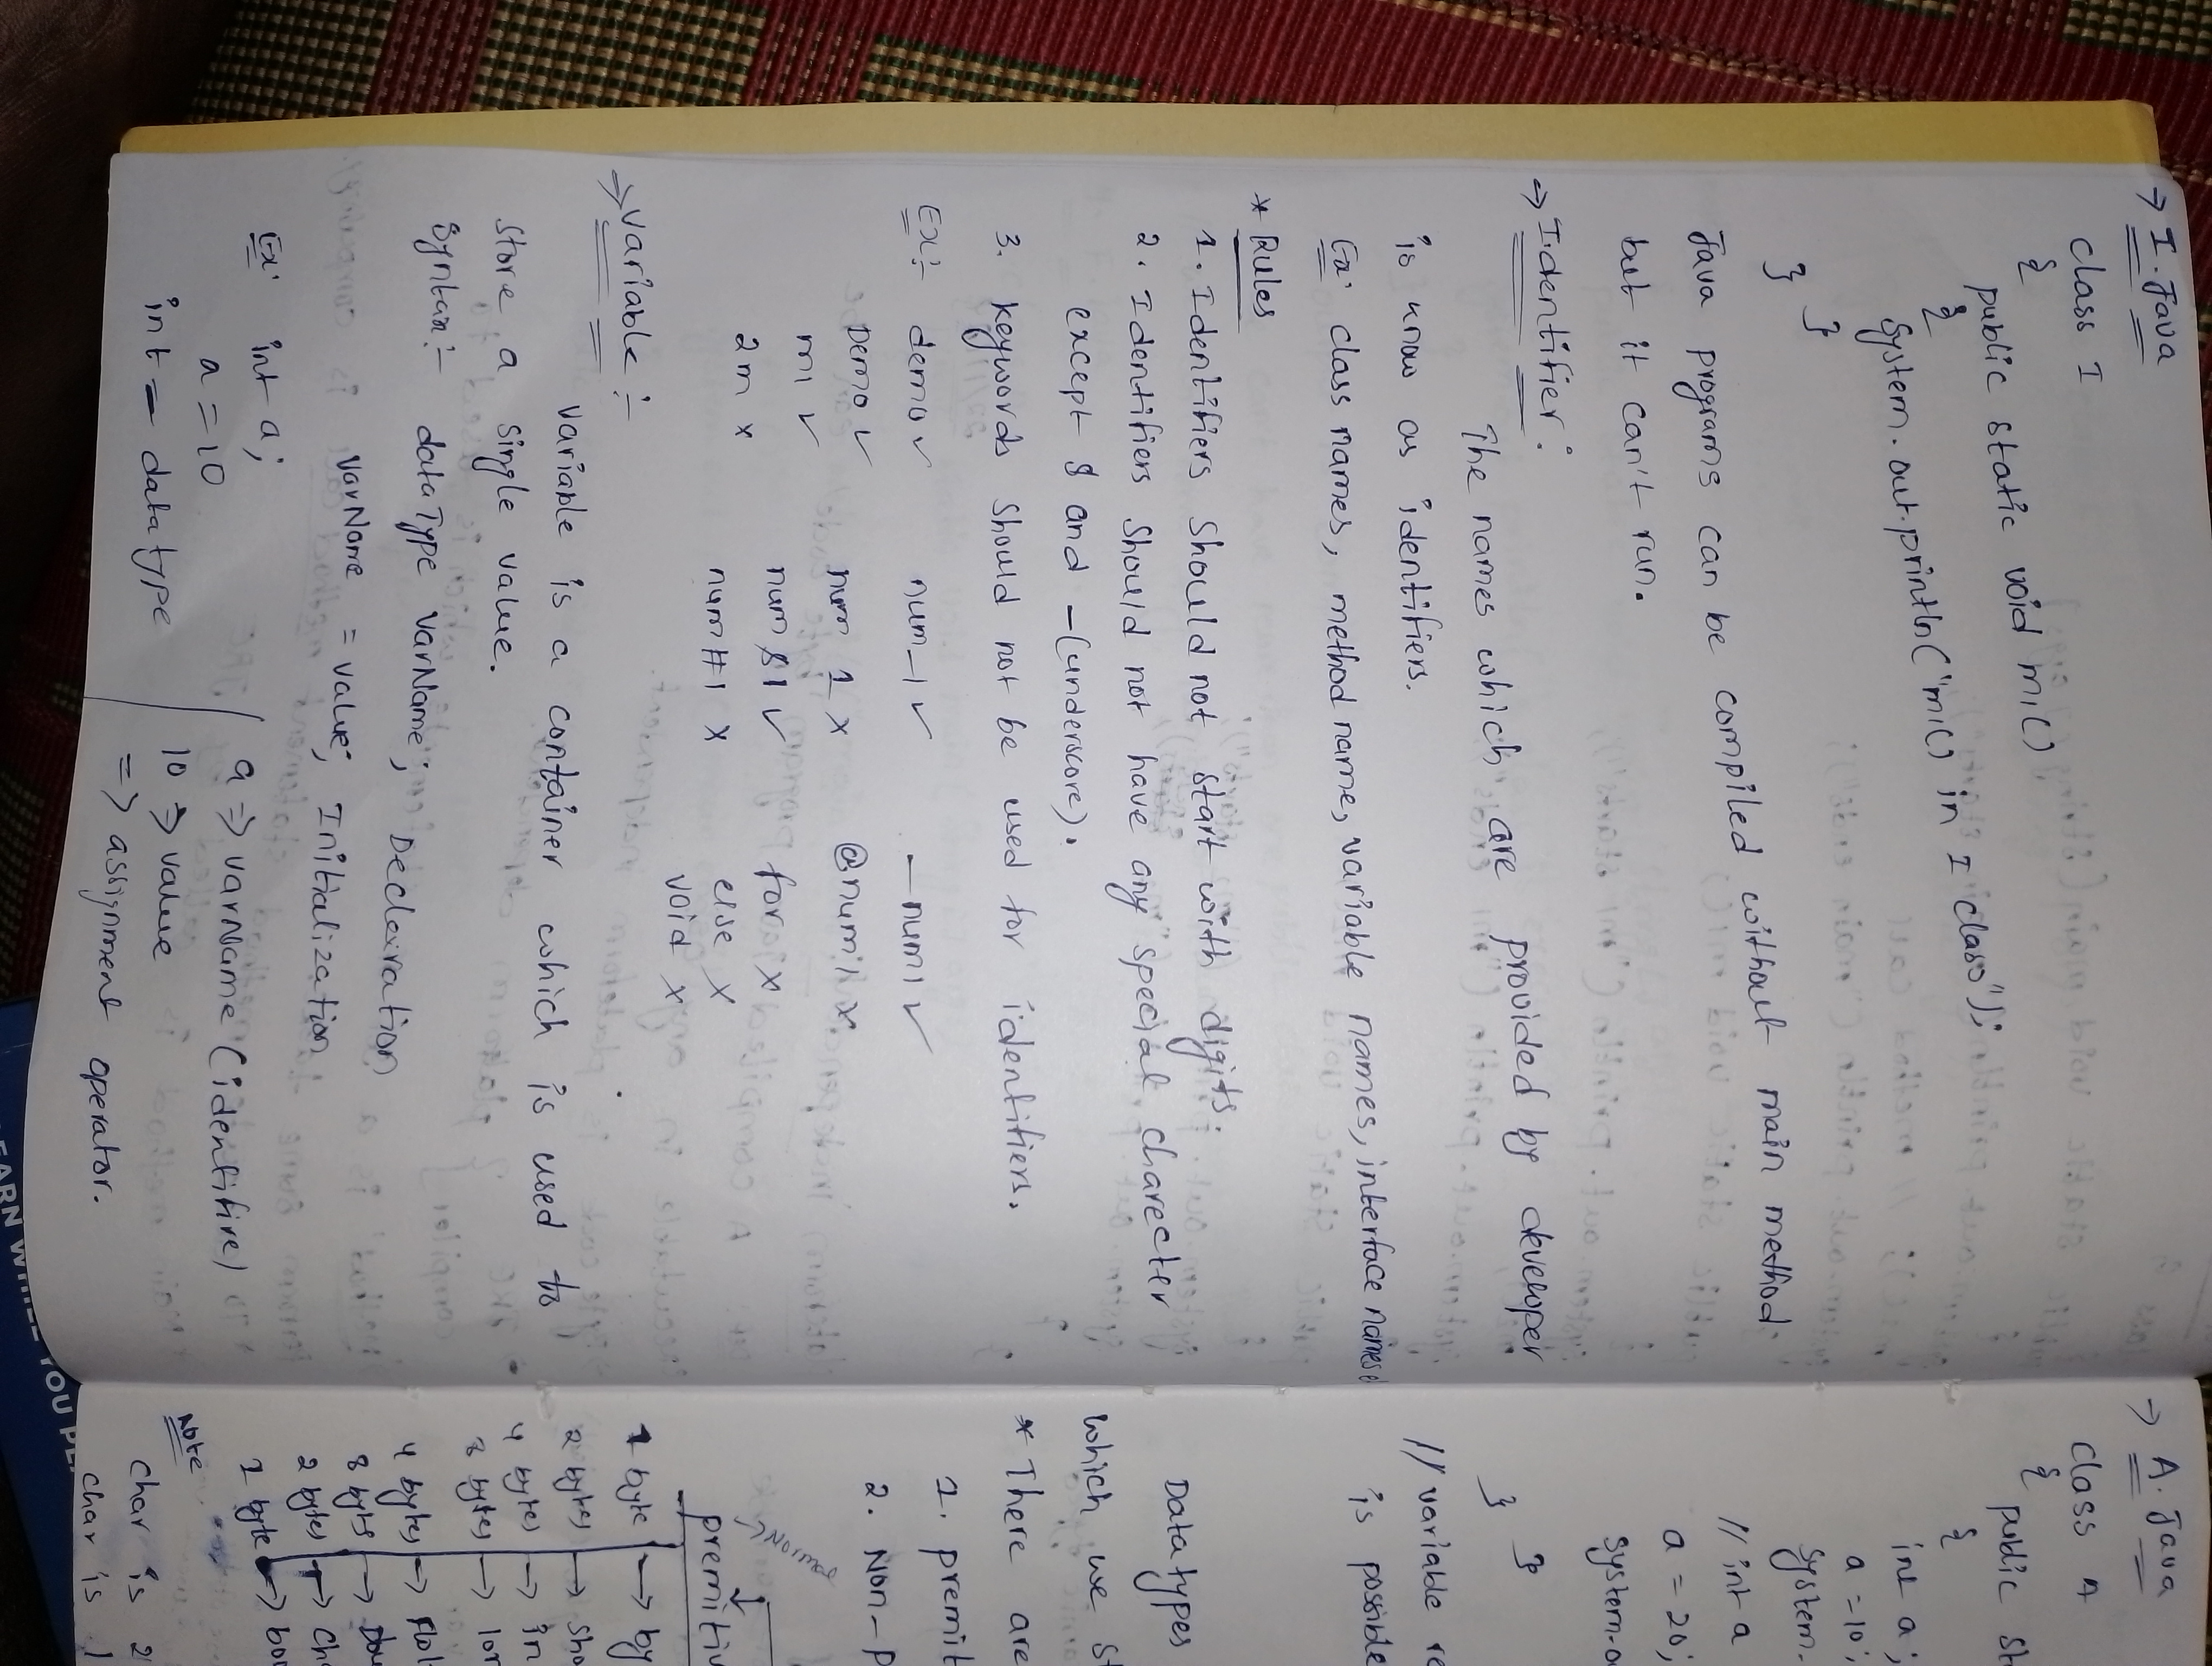 → I.Java
class I
{
public static void m1()
{
System.out.println("m1() in I class");
}
}
Java programs can be compiled without main method
but it can't run.
→ Identifier:
The names which are provided by developer
is know as identifiers.
Ex: class names, method name, variable names, interface names
* Rules
1. Identifiers should not start with digits.
2. Identifiers should not have any special charecter
except $ and _ (underscore).
3. keywords should not be used for identifiers.
Ex:- demo ✓ num_1 ✓ _num1 ✓
Demo ✓ num 1 x @num1 x
m1 ✓ num$1 ✓ for x
2m x num#1 x else x
void x
⇒ Variable :-
Variable is a container which is used to
store a single value.
Syntax:- dataType varName; Declaration
varName = value; Initialization
Ex: int a;
a = 10
int = datatype
a ⇒ varName (identifire)
10 ⇒ value
= ⇒ assignment operator.
→ A.Java
class A
{
public st
{
int a;
a = 10;
System.
// int a
a = 20;
System.o
}
}
// variable re
is possible
Datatypes
which we st
* There are
1. premit
2. Non-p
premitiv
1 byte → by
2 bytes → sho
4 bytes → in
8 bytes → lon
4 bytes → flo
8 bytes → Dou
2 bytes → ch
1 byte → boo
Note
char is 2
char is
EARN WHILE YOU